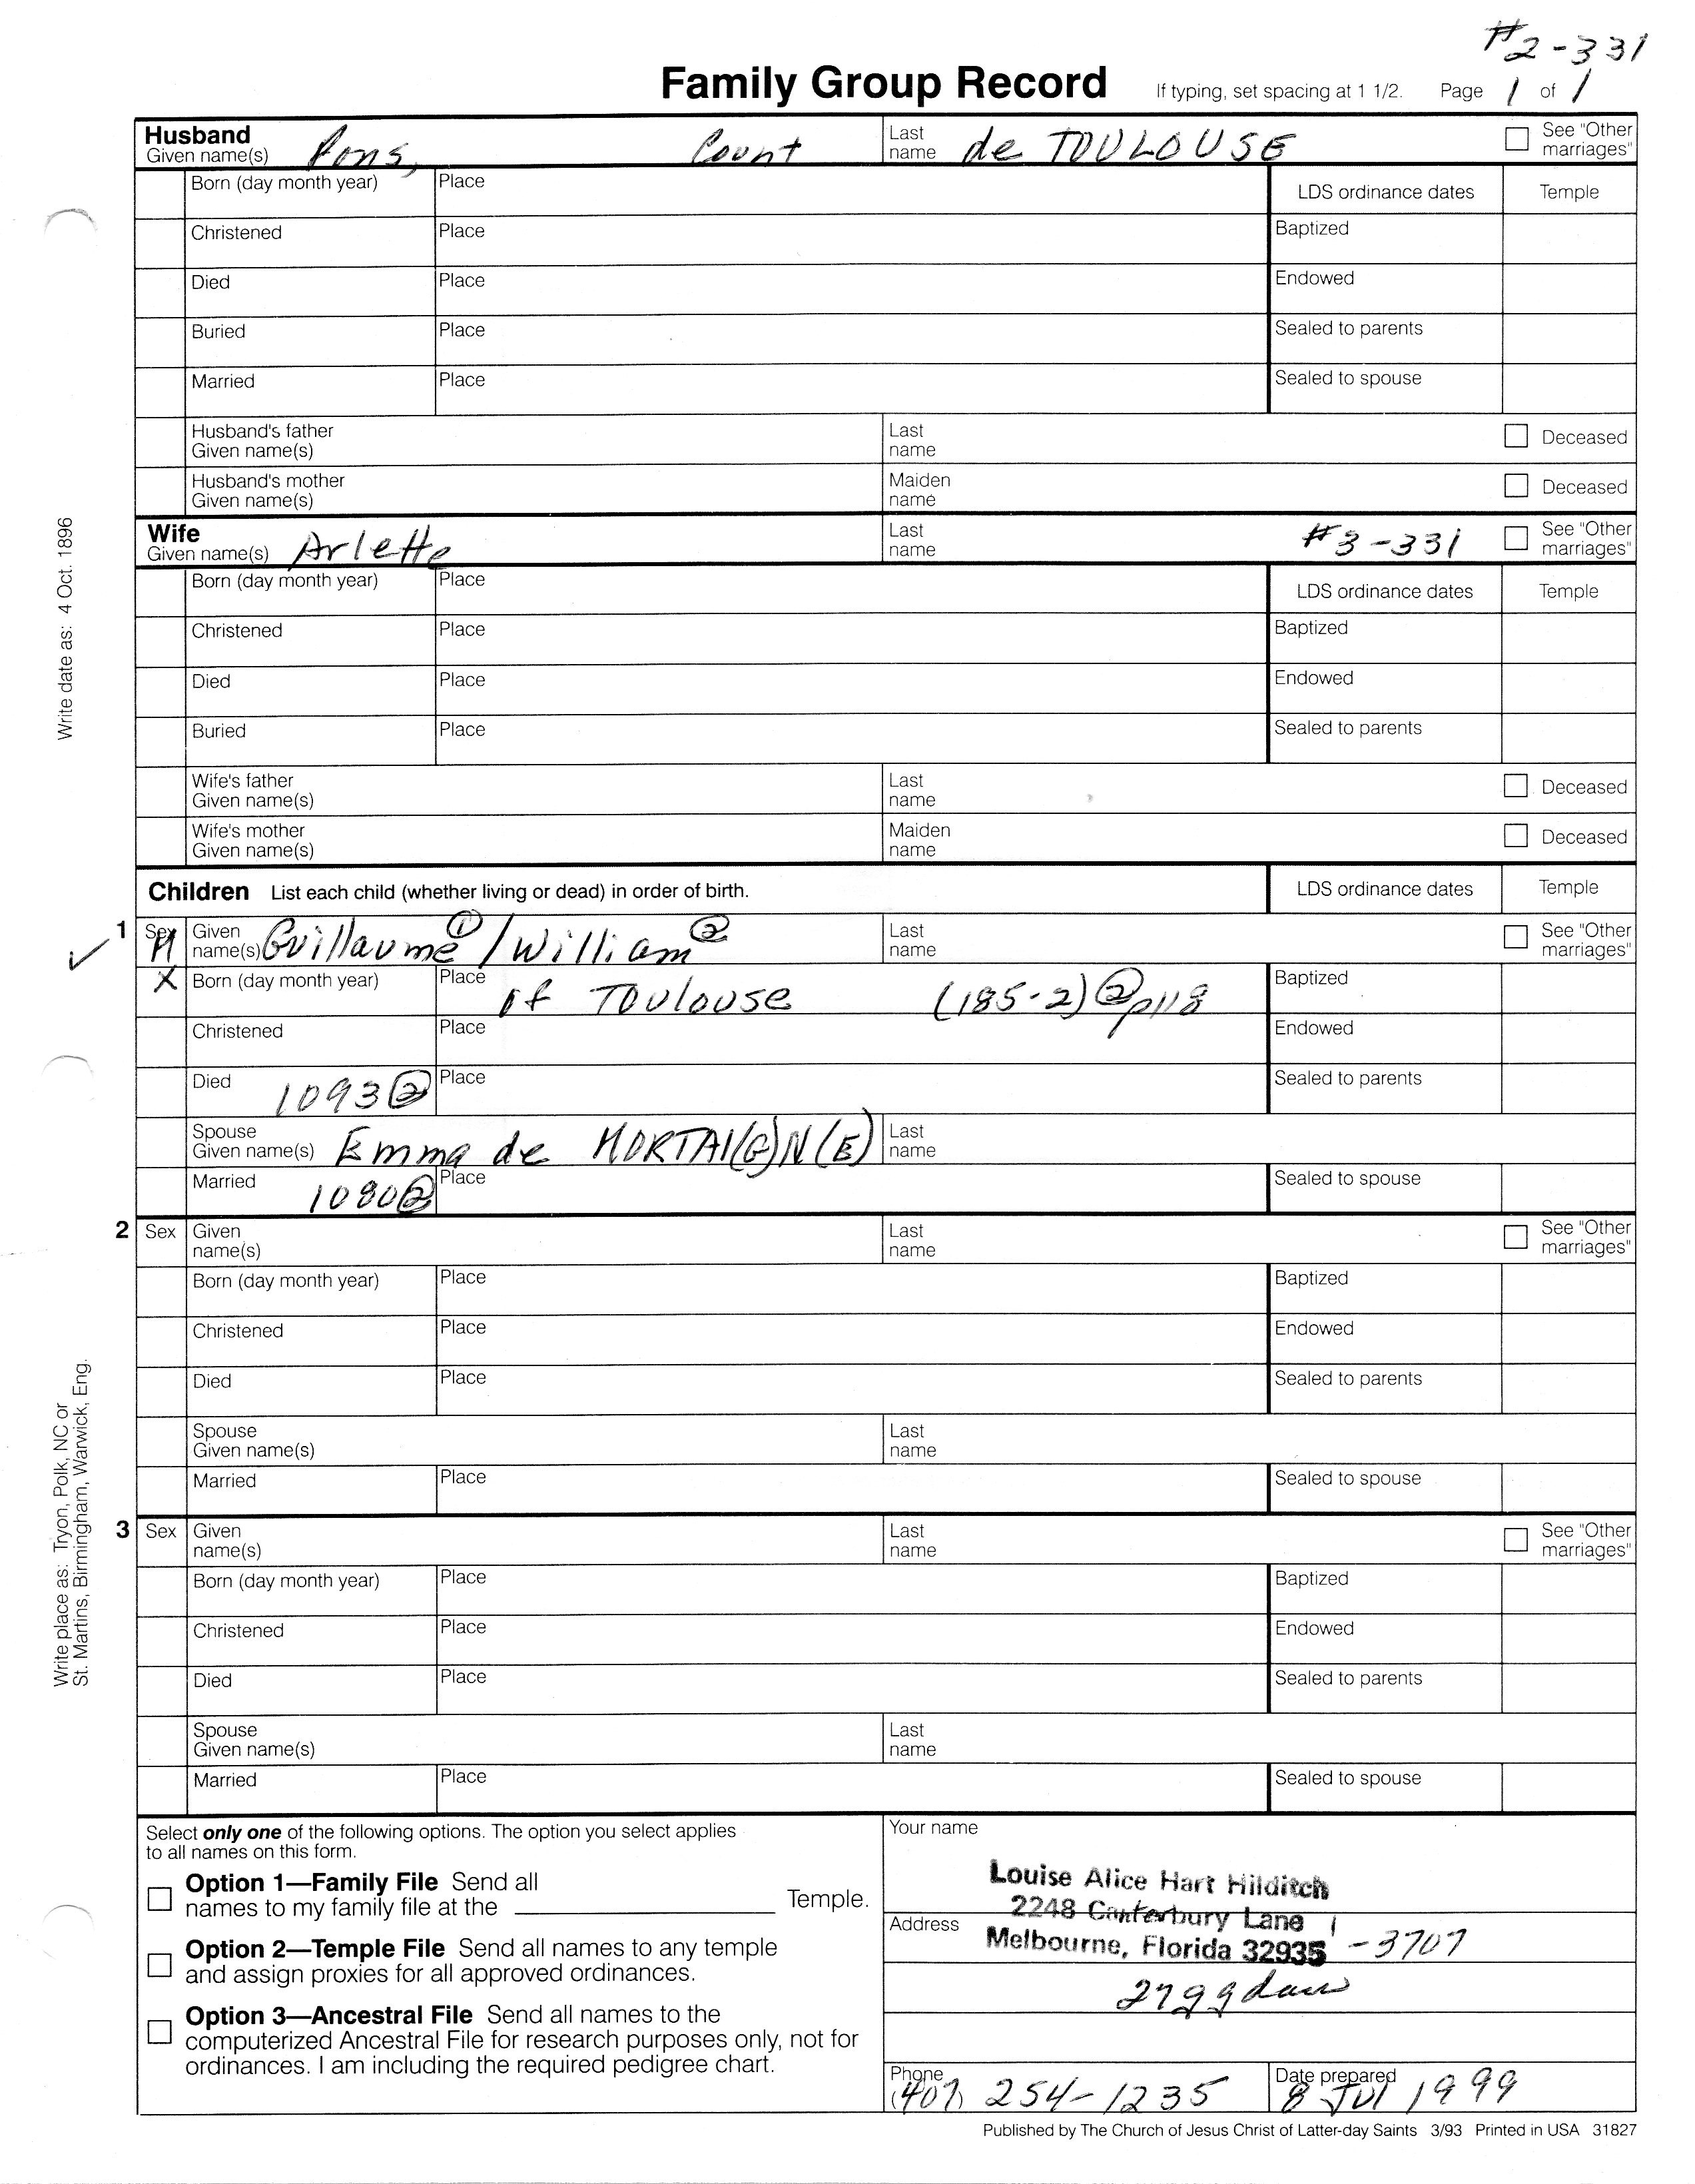 #2-331
Family Group Record If typing, set spacing at 1 1/2. Page 1 of 1
Husband
Given name(s) Pons, Count Last name de TOULOUSE See "Other marriages"
Born (day month year) Place LDS ordinance dates Temple
Christened Place Baptized
Died Place Endowed
Buried Place Sealed to parents
Married Place Sealed to spouse
Husband's father Given name(s) Last name Deceased
Husband's mother Given name(s) Maiden name Deceased
Wife
Given name(s) Arlette Last name #3-331 See "Other marriages"
Born (day month year) Place LDS ordinance dates Temple
Christened Place Baptized
Died Place Endowed
Buried Place Sealed to parents
Wife's father Given name(s) Last name Deceased
Wife's mother Given name(s) Maiden name Deceased
Children List each child (whether living or dead) in order of birth. LDS ordinance dates Temple
1 Sex M Given name(s) Guillaume ① / William ② Last name See "Other marriages"
X Born (day month year) Place of Toulouse (185-2) ② p118 Baptized
Christened Place Endowed
Died 1093 ② Place Sealed to parents
Spouse Given name(s) Emma de MORTAI(G)N(E) Last name
Married 1080 ② Place Sealed to spouse
2 Sex Given name(s) Last name See "Other marriages"
Born (day month year) Place Baptized
Christened Place Endowed
Died Place Sealed to parents
Spouse Given name(s) Last name
Married Place Sealed to spouse
3 Sex Given name(s) Last name See "Other marriages"
Born (day month year) Place Baptized
Christened Place Endowed
Died Place Sealed to parents
Spouse Given name(s) Last name
Married Place Sealed to spouse
Write date as: 4 Oct. 1896
Write place as: Tryon, Polk, NC or
St. Martins, Birmingham, Warwick, Eng.
Select only one of the following options. The option you select applies
to all names on this form.
Option 1—Family File Send all
names to my family file at the Temple.
Option 2—Temple File Send all names to any temple
and assign proxies for all approved ordinances.
Option 3—Ancestral File Send all names to the
computerized Ancestral File for research purposes only, not for
ordinances. I am including the required pedigree chart.
Your name
Louise Alice Hart Hilditch
Address 2248 Canterbury Lane
Melbourne, Florida 32935-3707
Phone (407) 254-1235 Date prepared 8 Jul 1999
Published by The Church of Jesus Christ of Latter-day Saints 3/93 Printed in USA 31827